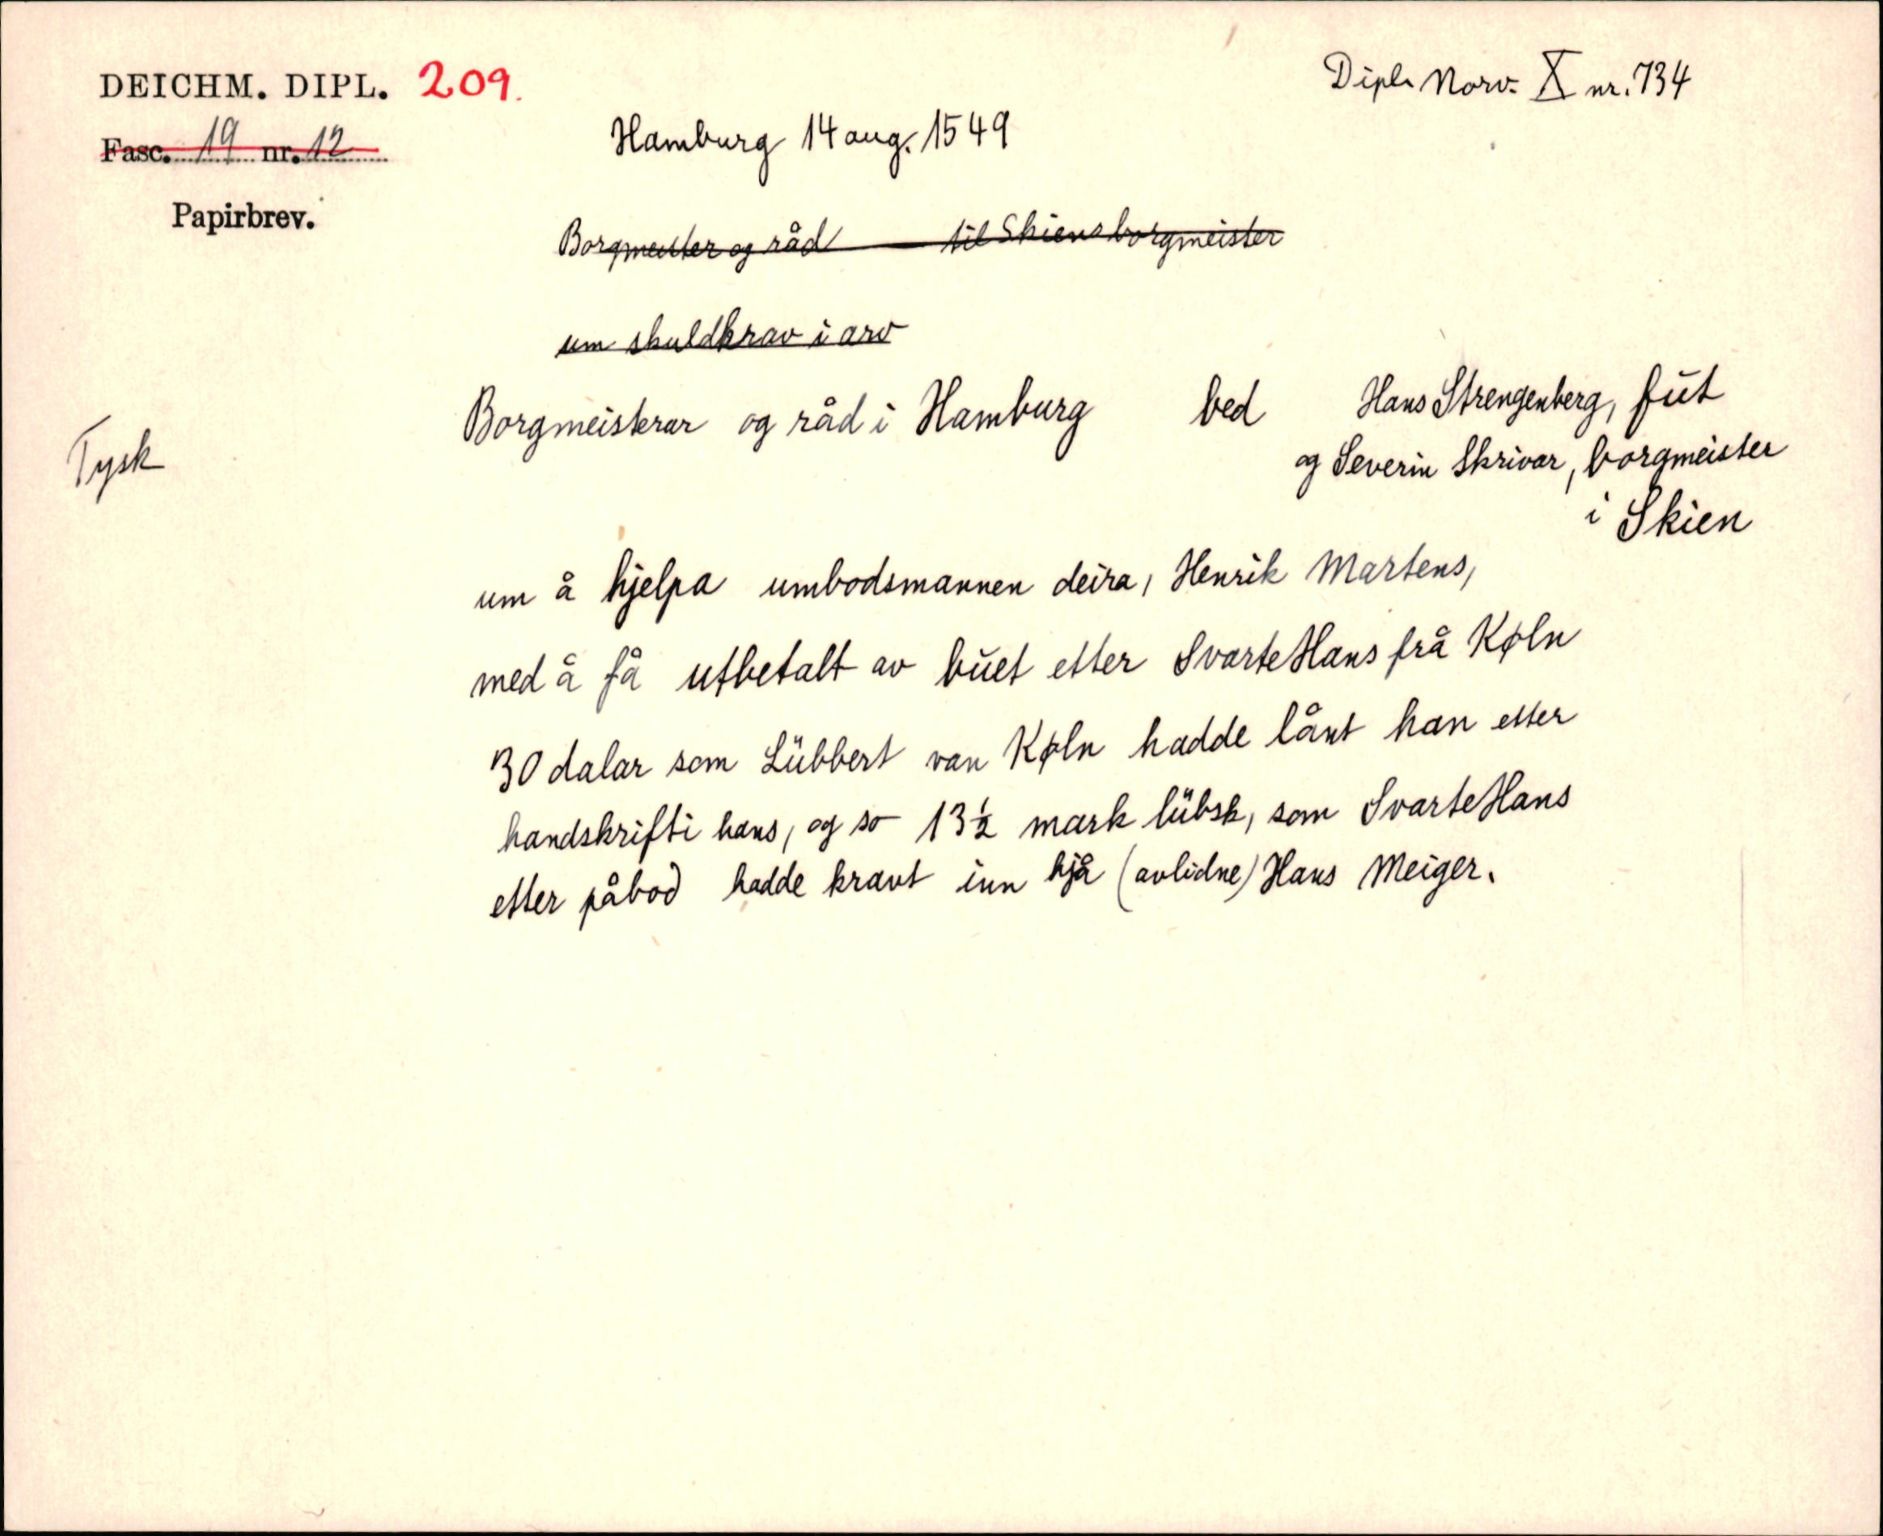 DEICHM. DIPL. 209.
Dipl. Norv. X nr. 734
Fasc. 19 nr. 12
Hamburg 14 aug. 1549
Papirbrev.
Borgmeister og råd til Skiens borgmeister
um skuldkrav i arv
Borgmeisterar og råd i Hamburg bed Hans Strengenberg, fut
Tysk
og Severin Skrivar, borgmeister
i Skien
um å hjelpa umbodsmannen deira, Henrik Martens,
med å få utbetalt av buet etter Svarte Hans frå Køln
30 dalar som Lübbert van Køln hadde lånt han etter
handskrifti hans, og so 13½ mark lübsk, som Svarte Hans
etter påbod hadde kravt inn hjå (avlidne) Hans Meiger.